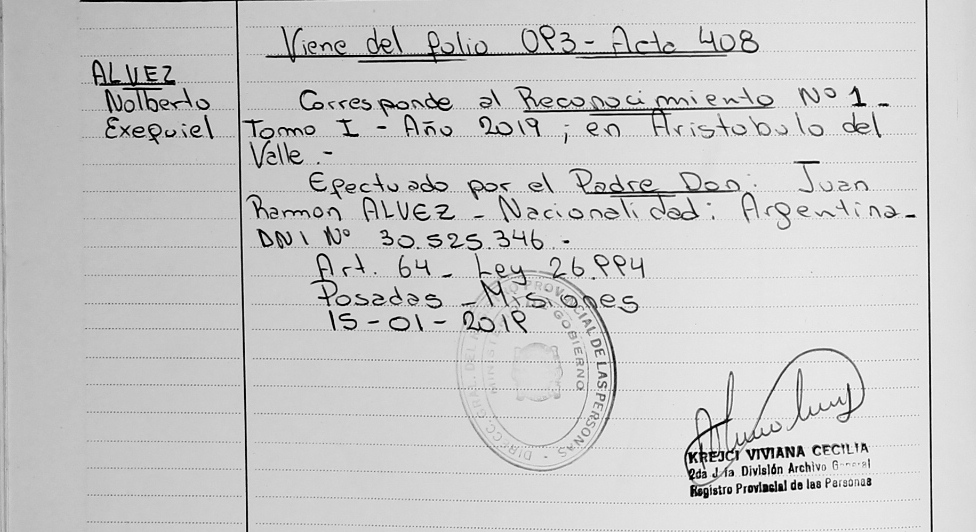 Viene del folio 093 - Acta 408
ALVEZ
Nolberto
Exequiel
Corresponde al Reconocimiento Nº 1 -
Tomo I - Año 2019 ; en Aristobulo del
Valle .-
Efectuado por el Padre Don: Juan
Ramon ALVEZ - Nacionalidad: Argentina -
DNI Nº 30.525.346 -
Art. 64 - Ley 26.994
Posadas - Misiones
15-01-2019
DIRECC. GRAL. DEL PROVINCIAL DE LAS PERSONAS
GOBIERNO
KREJCI VIVIANA CECILIA
2da J fa División Archivo General
Registro Provincial de las Personas